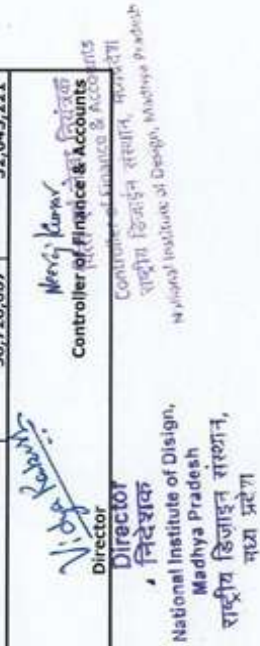 Director
Director
निदेशक
National Institute of Disign,
Madhya Pradesh
राष्ट्रीय डिजाइन संस्थान,
मध्य प्रदेश
Neeraj Kumar
Controller of Finance & Accounts
Controller of Finance & Accounts
राष्ट्रीय डिजाईन संस्थान, मध्यप्रदेश
National Institute of Design, Madhya Pradesh